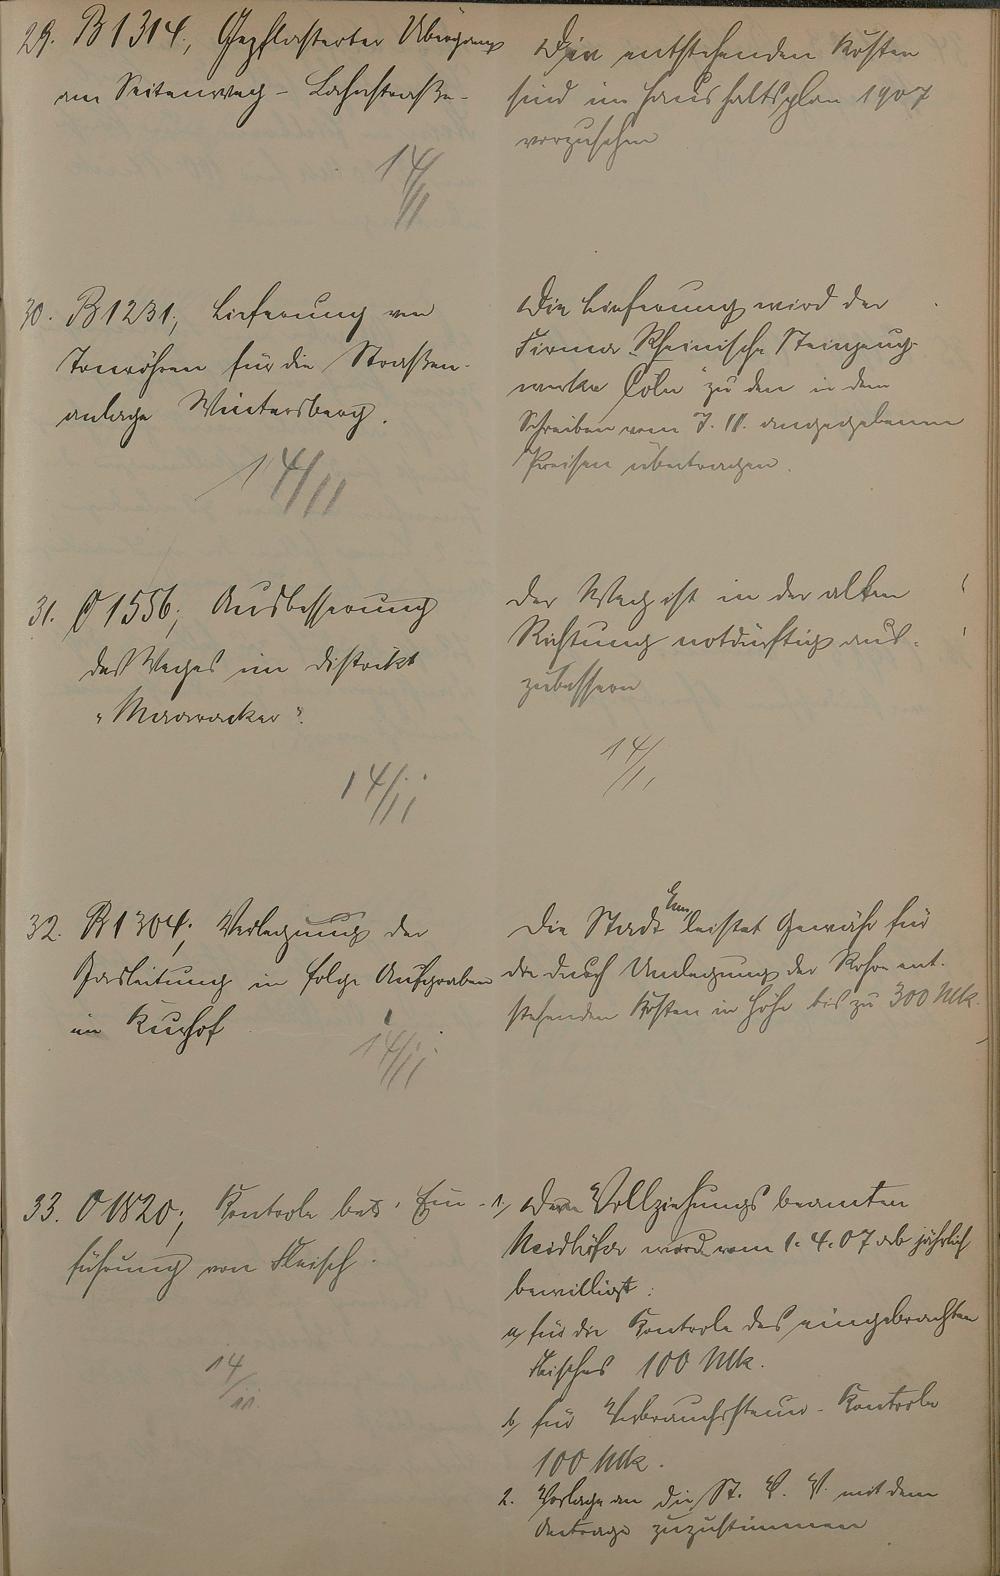 29. B 1314; Gepflasterter Übergang
am Seitenweg - Lahnstraße -
14/II
Die entstehenden Kosten
sind im Haushaltsplan 1907
vorzusehen
30. B 1231; Lieferung von
Tonröhren für die Straßen-
anlage Wintersberg.
14/II
Die Lieferung wird der
Firma "Rheinische Steinzeug-
werke Cöln" zu den in dem
Schreiben vom 7. II. angegebenen
Preisen übertragen.
31. O 1556; Ausbesserung
des Weges im Distrikt
"
14/II
Der Weg ist in der alten
Richtung notdürftig aus-
zubessern
14/II
32. B 1304; Verlegung der
Gasleitung in folge Aufgraben
im Kurhof
14/II
Die Stadt Ems leistet Gewähr für
die durch Umlegung der Rohre ent-
stehenden Kosten in Höhe bis zu 300 Mk.
33. O 1820; Kontrole bei Ein-
führung von Fleisch.
14/II.
1) Dem Vollziehungsbeamten
Neidhöfer wird vom 1.4.07 ab jährlich
bewilligt:
a) für die Kontrole des eingebrachten
Fleisches 100 Mk.
b) für Verbrauchssteuer-Kontrole
100 Mk.
2. Vorlage an die St. V. V. mit dem
Antrage zuzustimmen